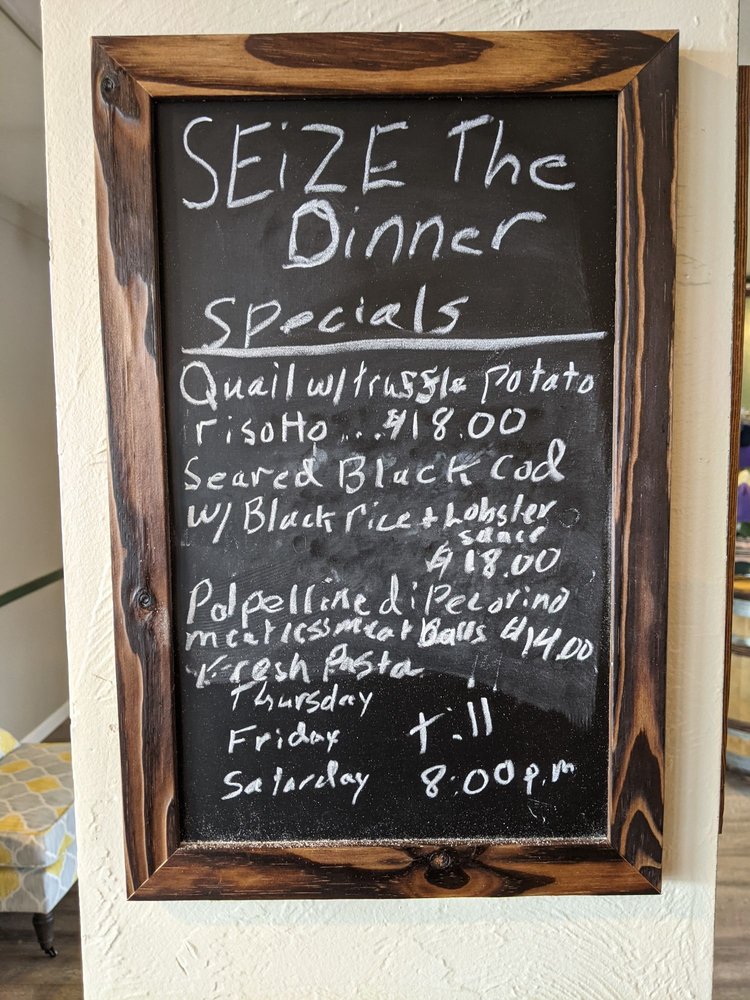 SEiZE The
Dinner
Specials
Quail w/ truffle potato
risotto ... $18.00
Seared Black Cod
w/ Black rice + Lobster
sauce
$18.00
Polpelline di Pecorino
meatless meat Balls $14.00
Fresh Pasta
Thursday
Friday till
Saturday 8:00 p.m